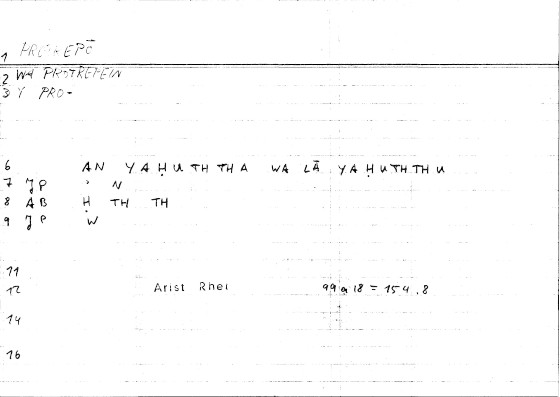 1
2 WH PROTREPEIN
3 Y PRO-
6 AN YAḤUTHTHA WA LĀ YAḤUTHTHU
7 JP ʾ N
8 AB Ḥ TH TH
9 JP W
11
12 Arist Rhet 99a18 = 154,8
14
16